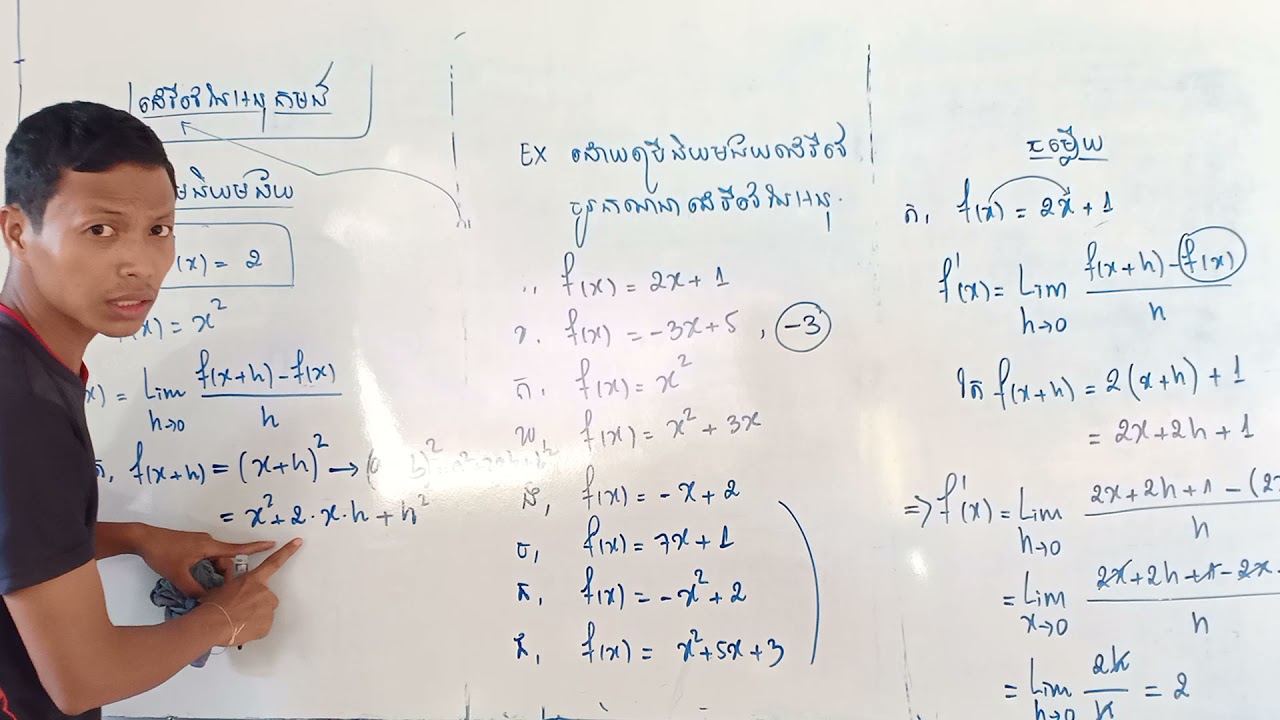 ដេរីវេនៃអនុគមន៍
មនិយមន័យ
(x) = 2
(x) = x²
x) = Lim h→0 f(x+h) - f(x) / h
គ. f(x+h) = (x+h)² →
= x² + 2·x·h + h²
EX ដោយប្រើនិយមន័យដេរីវេ
ចូរគណនាដេរីវេនៃអនុ.
f(x) = 2x + 1
ខ. f(x) = -3x + 5 , -3
គ. f(x) = x²
ឃ, f(x) = x² + 3x
ង, f(x) = -x + 2
ច, f(x) = 7x + 1
f(x) = -x² + 2
f(x) = x² + 5x + 3
ចម្លើយ
ក, f(x) = 2x + 1
f'(x) = Lim h→0 f(x+h) - f(x) / h
តែ f(x+h) = 2(x+h) + 1
= 2x + 2h + 1
=> f'(x) = Lim h→0 2x + 2h + 1 - (2x / h
= Lim x→0 2x + 2h + 1 - 2x - / h
= Lim h→0 2h / h = 2